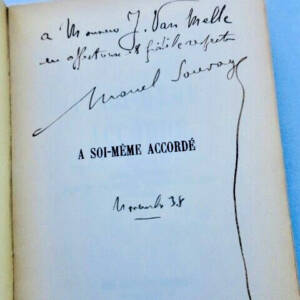 à Monsieur J. Van Melle
en affectueux & fidèle respect
Marcel Sauvage
A SOI-MÊME ACCORDÉ
Novembre 38